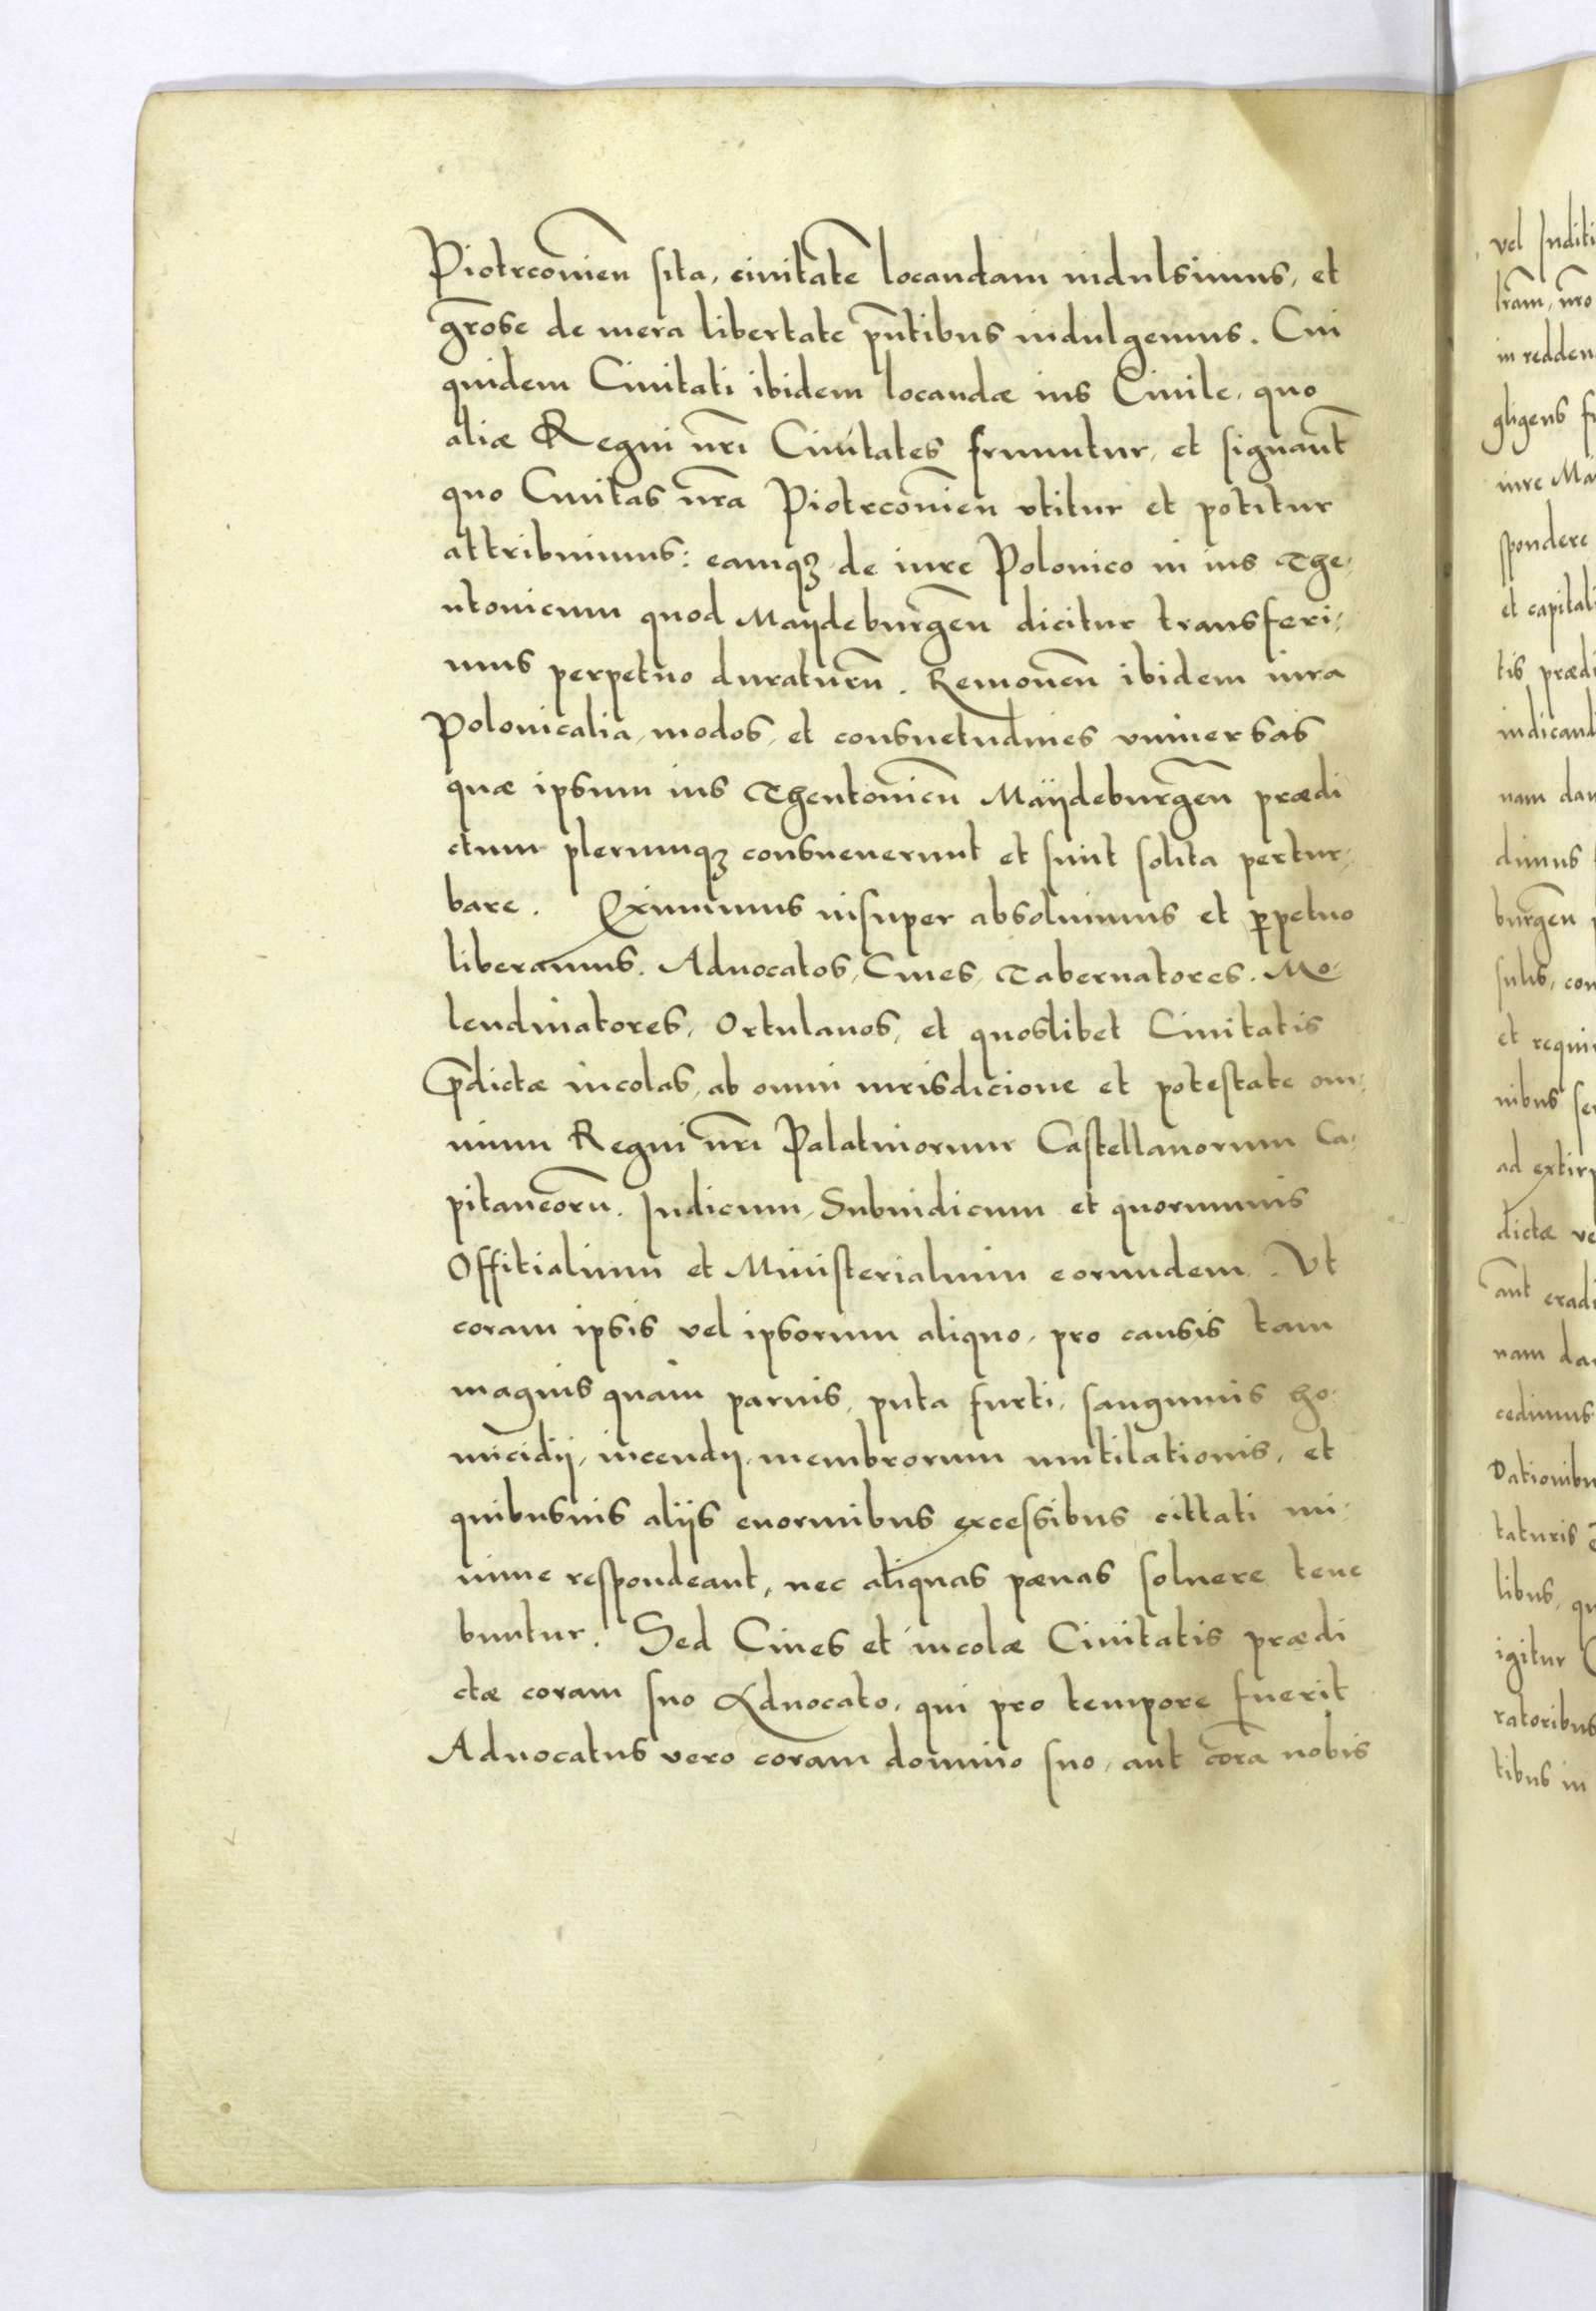 Piotrcouien̄ sita, ciuitatē locandam indulsimus, et
gr̄ose de mera libertate pn̄tibus indulgemus. Cui
quidem Ciuitati ibidem locandæ ius Ciuile, quo
aliæ Regni nr̄i Ciuitates fruuntur, et signant̄
quo Ciuitas nr̄a Piotrcouien̄ vtitur et potitur
attribuimus: eamqꝫ de iure Polonico in ius The-
utonicum quod Maydeburgen̄ dicitur transferi-
mus perpetuo duraturū. Remouen̄ ibidem iura
Polonicalia, modos, et consuetudines vniuersas
quæ ipsum ius Theutonicū Maÿdeburgen̄ prædi
ctum plerumqꝫ consueuerunt et sunt solita pertur-
bare. Eximimus insuper absoluimus et ꝑpetuo
liberamus. Aduocatos, Ciues, Tabernatores. Mo-
lendinatores, Ortulanos, et quoslibet Ciuitatis
P̄dictæ incolas, ab omni iurisdicione et potestate om-
nium Regni nr̄i Palatinorum Castellanorum Ca-
pitaneorū. Iudicum, Subiudicum et quorumuis
Offitialium et Ministerialium eorundem. Vt
coram ipsis vel ipsorum aliquo, pro causis tam
magnis quam paruis, puta furti, sanguinis ho-
micidij, incendij, membrorum mutilationis, et
quibusuis alijs enormibus excessibus cittati mi-
nime respondeant, nec aliquas pænas soluere tene
buntur. Sed Ciues et incolæ Ciuitatis prædi
ctæ coram suo Aduocato, qui pro tempore fuerit
Aduocatus vero coram domino suo, aut corā nobis
vel
lr̄am, nr̄o
in redden
gligens
iure Ma
spondere
et capitali
tis prædi
iudicand
nam dam
dimus
burgen̄
sulis, con
et requi
nibus
ad extirp
dictæ ve
aut̄ eradi
nam dam
cedimus
Dationibu
taturis
libus, qu
igitur
ratoribus
tibus in